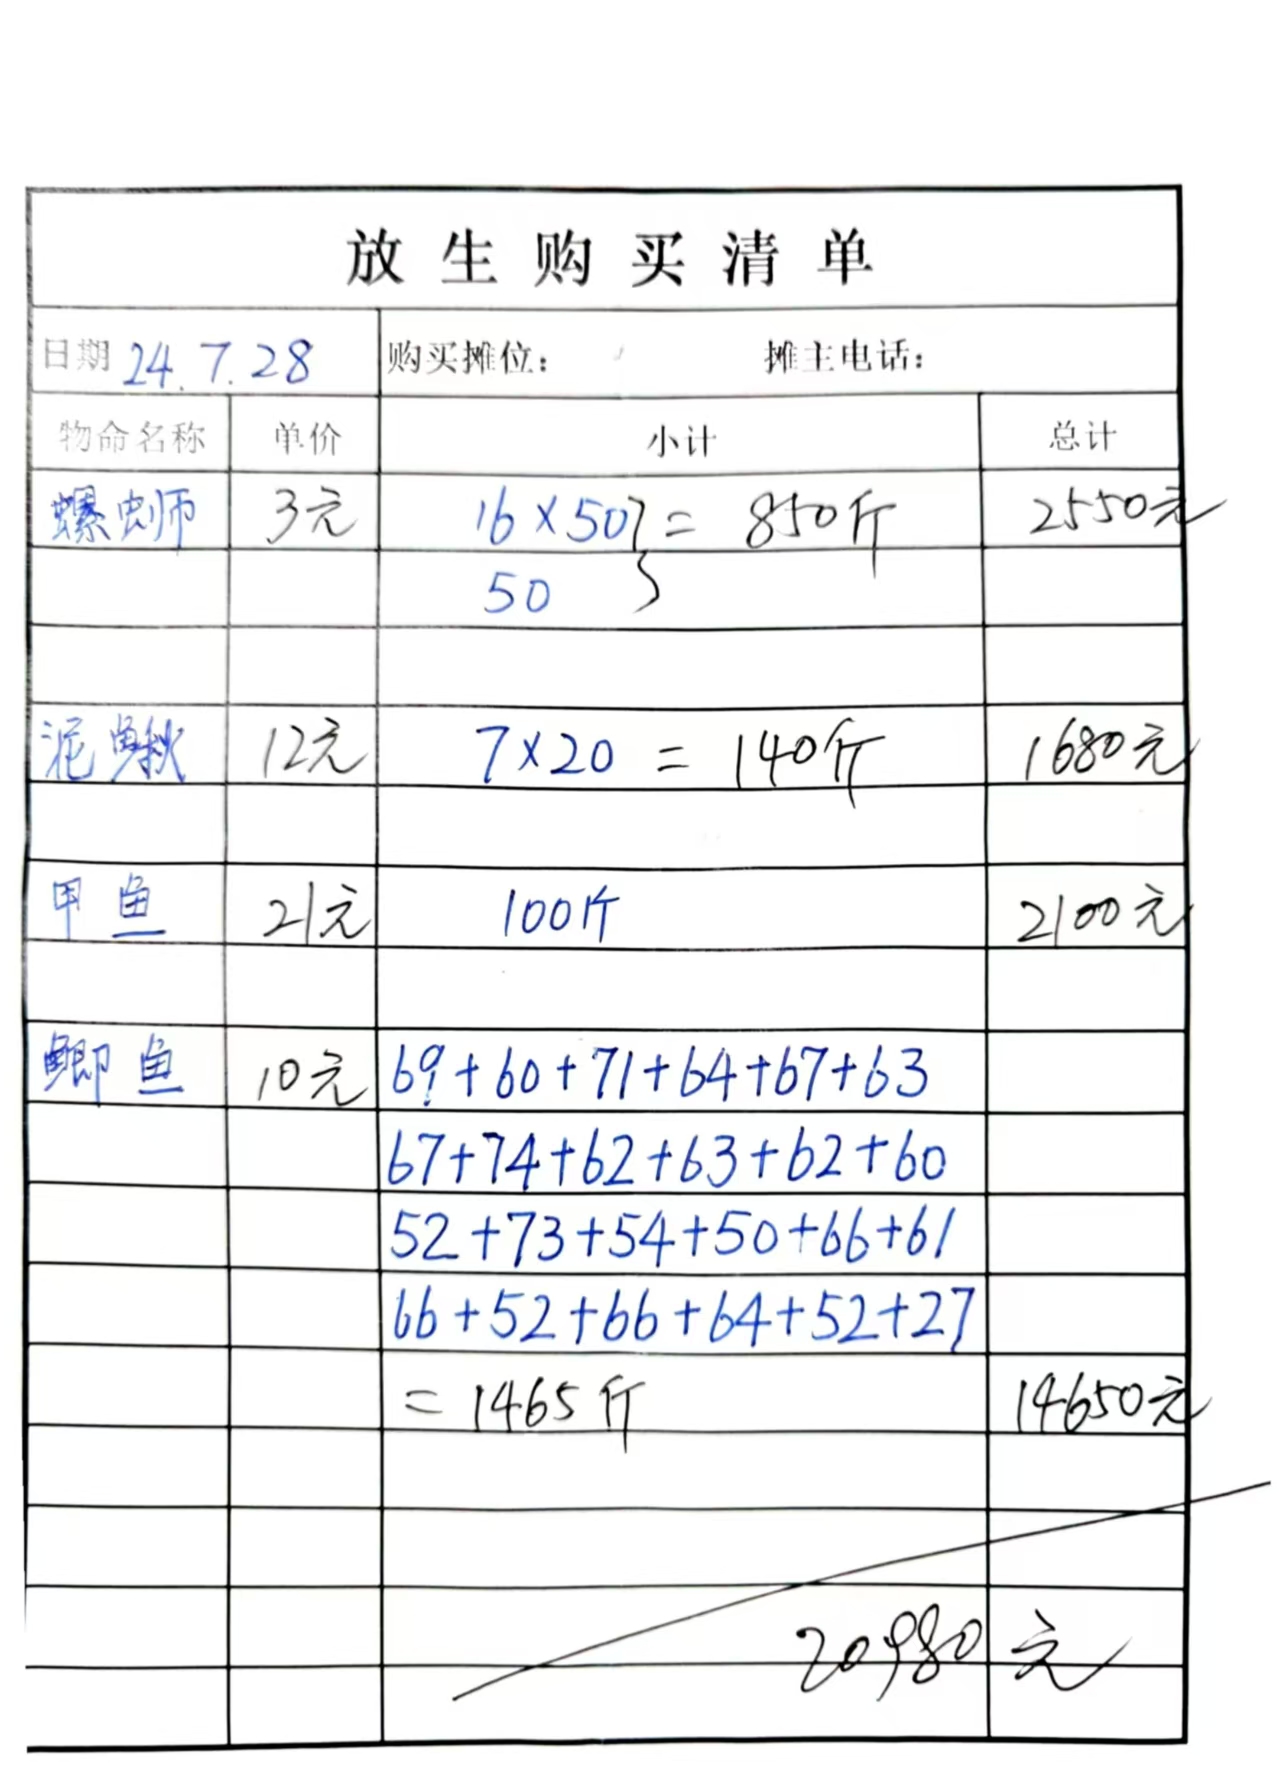 放生购买清单
日期 24.7.28 购买摊位： 摊主电话：
物命名称 单价 小计 总计
螺蛳 3元 16×50 } = 850斤 2550元
50
泥鳅 12元 7×20 = 140斤 1680元
甲鱼 21元 100斤 2100元
鲫鱼 10元 69+60+71+64+67+63
67+74+62+63+62+60
52+73+54+50+66+61
66+52+66+64+52+27
= 1465斤 14650元
20980元